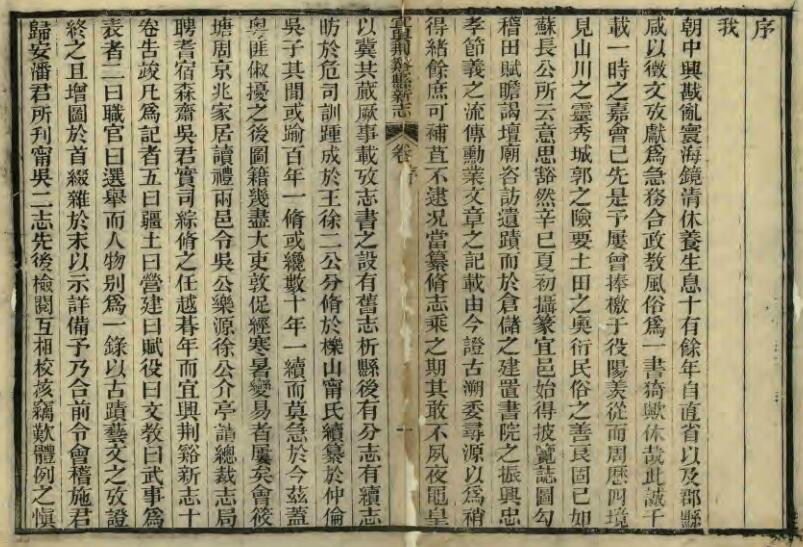 序
我
朝中興戡亂寰海鏡清休養生息十有餘年自直省以及郡縣
咸以徵文攷獻爲急務合政教風俗爲一書猗歟休哉此誠千
載一時之嘉會已先是予屢曾捧檄于役陽羨從而周歷四境
見山川之靈秀城郭之險要土田之奧衍民俗之善良固已如
蘇長公所云意思豁然辛巳夏初攝篆宜邑始得披覽誌圖勾
稽田賦瞻謁壇廟咨訪遺蹟而於倉儲之建置書院之振興忠
孝節義之流傳勳業文章之記載由今證古溯委尋源以爲稍
得緒餘庶可補苴不逮况當纂脩志乘之期其敢不夙夜黽皇
宜興荆谿縣新志 卷 序 一
以冀共蕆厥事載攷志書之設有舊志析縣後有分志有續志
昉於危司訓踵成於王徐二公分脩於櫟山甯氏續纂於仲倫
吳子其閒或踰百年一脩或纔數十年一續而莫急於今茲蓋
粤匪俶擾之後圖籍幾盡大吏敦促經寒暑變易者屢矣會筱
塘周京兆家居讀禮兩邑令吳公樂源徐公介亭請總裁志局
聘耆宿森齋吳君實司綜脩之任越朞年而宜興荆谿新志十
卷告竣凡爲記者五曰疆土曰營建曰賦役曰文教曰武事爲
表者二曰職官曰選舉而人物别爲一錄以古蹟藝文之攷證
終之且增圖於首綴雜於末以示詳備予乃合前令會稽施君
歸安潘君所刊甯吳二志先後檢閱互相校核竊歎體例之愼